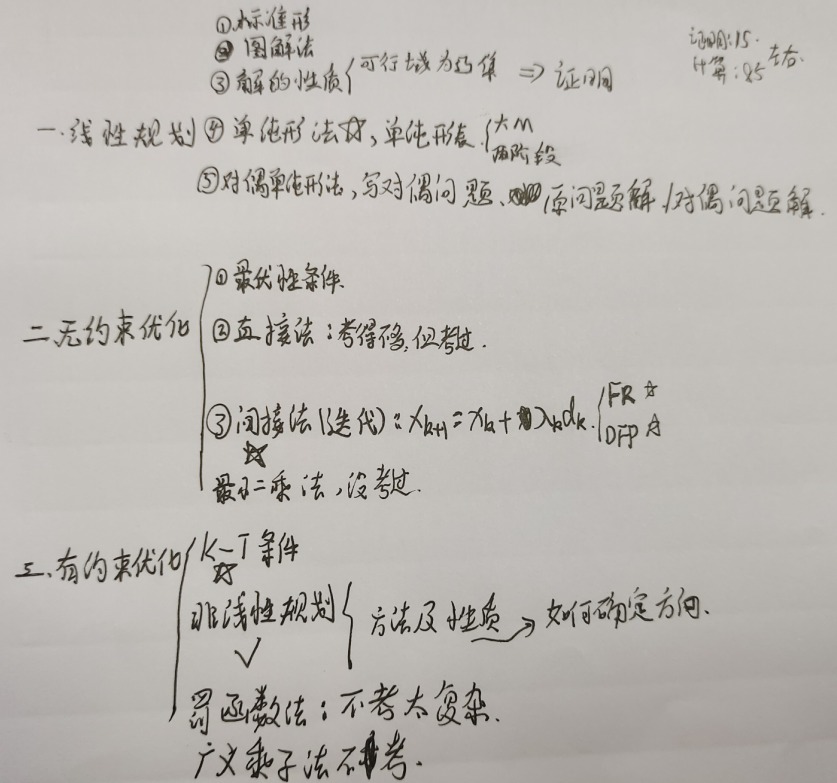 ①标准形
②图解法
③解的性质{可行域为凸集 ⇒ 证明
证明:15.
计算:85 左右.
一.线性规划 ④单纯形法☆,单纯形表{大M
两阶段
⑤对偶单纯形法,写对偶问题、原问题解/对偶问题解.
二.无约束优化
①最优性条件.
②直接法:考得少,但考过.
③间接法(迭代):x_{k+1}=x_k+λ_k d_k.{FR ☆
☆ DFP ☆
最小二乘法,没考过.
三.有约束优化{K-T条件
☆
非线性规划{方法及性质→如何确定方向.
✓
罚函数法:不考太复杂.
广义乘子法不考.